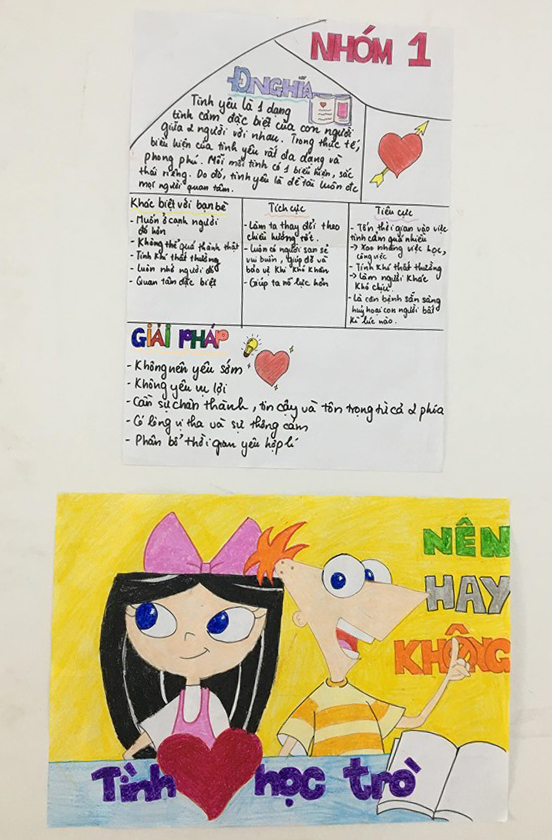 NHÓM 1
Đ.NGHĨA
Tình yêu là 1 dạng
tình cảm đặc biệt của con người
giữa 2 người với nhau. Trong thực tế,
biểu hiện của tình yêu rất đa dạng và
phong phú. Mỗi mối tình có 1 biểu hiện, sắc
thái riêng. Do đó, tình yêu là đề tài luôn đc
mọi người quan tâm.
Khác biệt với bạn bè
- Muốn ở cạnh người
đó hơn
- Không thể quá thành thật
- Tính khí thất thường
- Luôn nhớ người đó
- Quan tâm đặc biệt
Tích cực
- Làm ta thay đổi theo
chiều hướng tốt.
- Luôn có người san sẻ
vui buồn, giúp đỡ và
bảo vệ khi khó khăn
- Giúp ta nỗ lực hơn
Tiêu cực
- Tốn thời gian vào việc
tình cảm quá nhiều
→ Xao nhãng việc học,
công việc
- Tính khí thất thường
→ Làm người khác
khó chịu.
- Là căn bệnh sẵn sàng
huỷ hoại con người bất
kì lúc nào.
GIẢI PHÁP
- Không nên yêu sớm
- Không yêu vụ lợi
- Cần sự chân thành, tin cậy và tôn trọng từ cả 2 phía
- Có lòng vị tha và sự thông cảm
- Phân bổ thời gian yêu hợp lí
NÊN
HAY
KHÔNG
Tình học trò